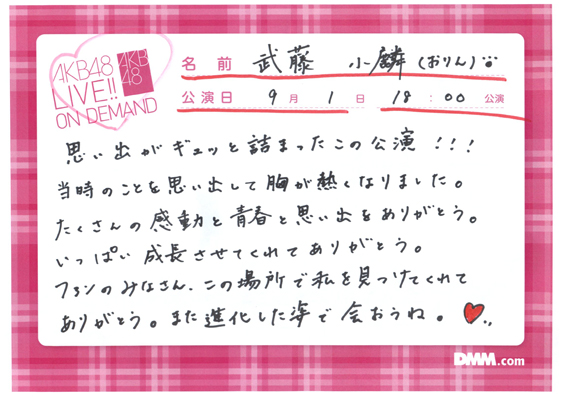 AKB48
LIVE!!
ON DEMAND
AKB
48
名前 武藤 小麟(おりん)
公演日 9月1日 18:00 公演
思い出がギュッと詰まったこの公演!!!
当時のことを思い出して胸が熱くなりました。
たくさんの感動と青春と思い出をありがとう。
いっぱい成長させてくれてありがとう。
ファンのみなさん、この場所で私を見つけてくれて
ありがとう。また進化した姿で会おうね。
DMM.com